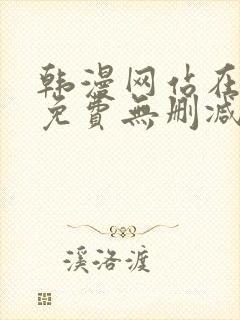 韩漫网站在
免費無删减
溪洛渡